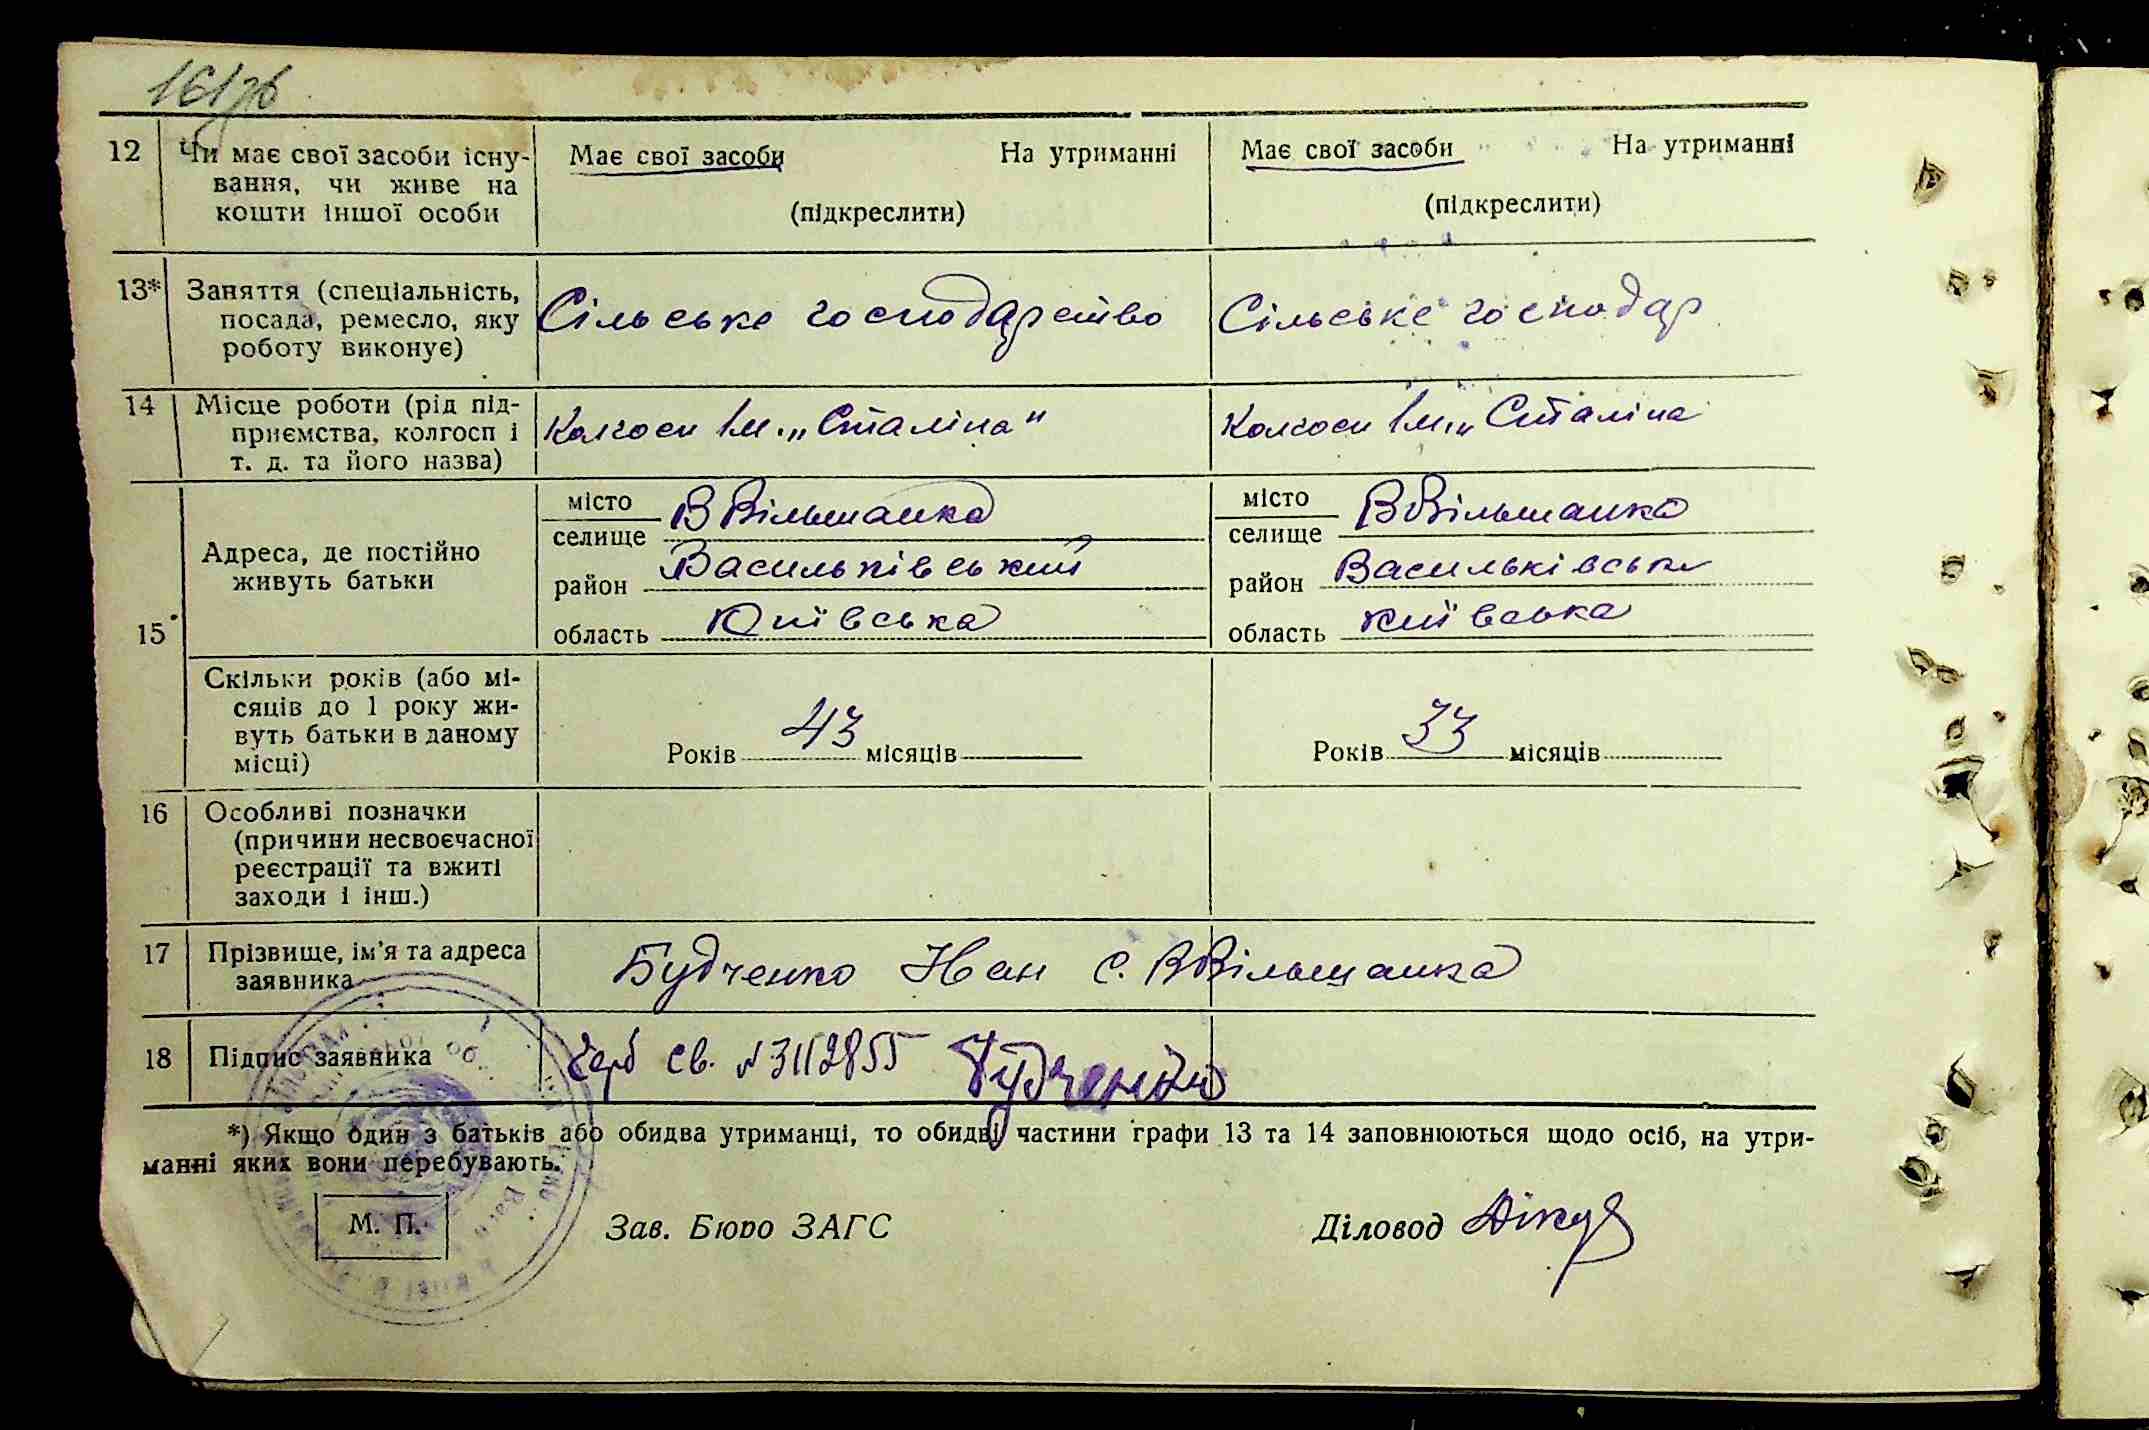 161зв
12 Чи має свої засоби існу- Має свої засоби На утриманні Має свої засоби На утриманні
вання, чи живе на
кошти іншої особи (підкреслити) (підкреслити)
13* Заняття (спеціальність,
посада, ремесло, яку Сільське господарство Сільське господар
роботу виконує)
14 Місце роботи (рід під-
приємства, колгосп і Колгосп ім. „Сталіна" Колгосп ім „Сталіна
т. д. та його назва)
15 Адреса, де постійно
живуть батьки
місто
селище В Вільшанка
район Васильківський
область Київська
місто
селище В Вільшанка
район Васильківськи
область київська
Скільки років (або мі-
сяців до 1 року жи-
вуть батьки в даному
місці)
Років 43 місяців
Років 33 місяців
16 Особливі позначки
(причини несвоєчасної
реєстрації та вжиті
заходи і інш.)
17 Прізвище, ім'я та адреса
заявника
Будченко Иван с. В Вільшанка
18 Підпис заявника
св. № 3112855 Будченко
*) Якщо один з батьків або обидва утриманці, то обидві частини графи 13 та 14 заповнюються щодо осіб, на утри-
манні яких вони перебувають.
М. П. Зав. Бюро ЗАГС Діловод